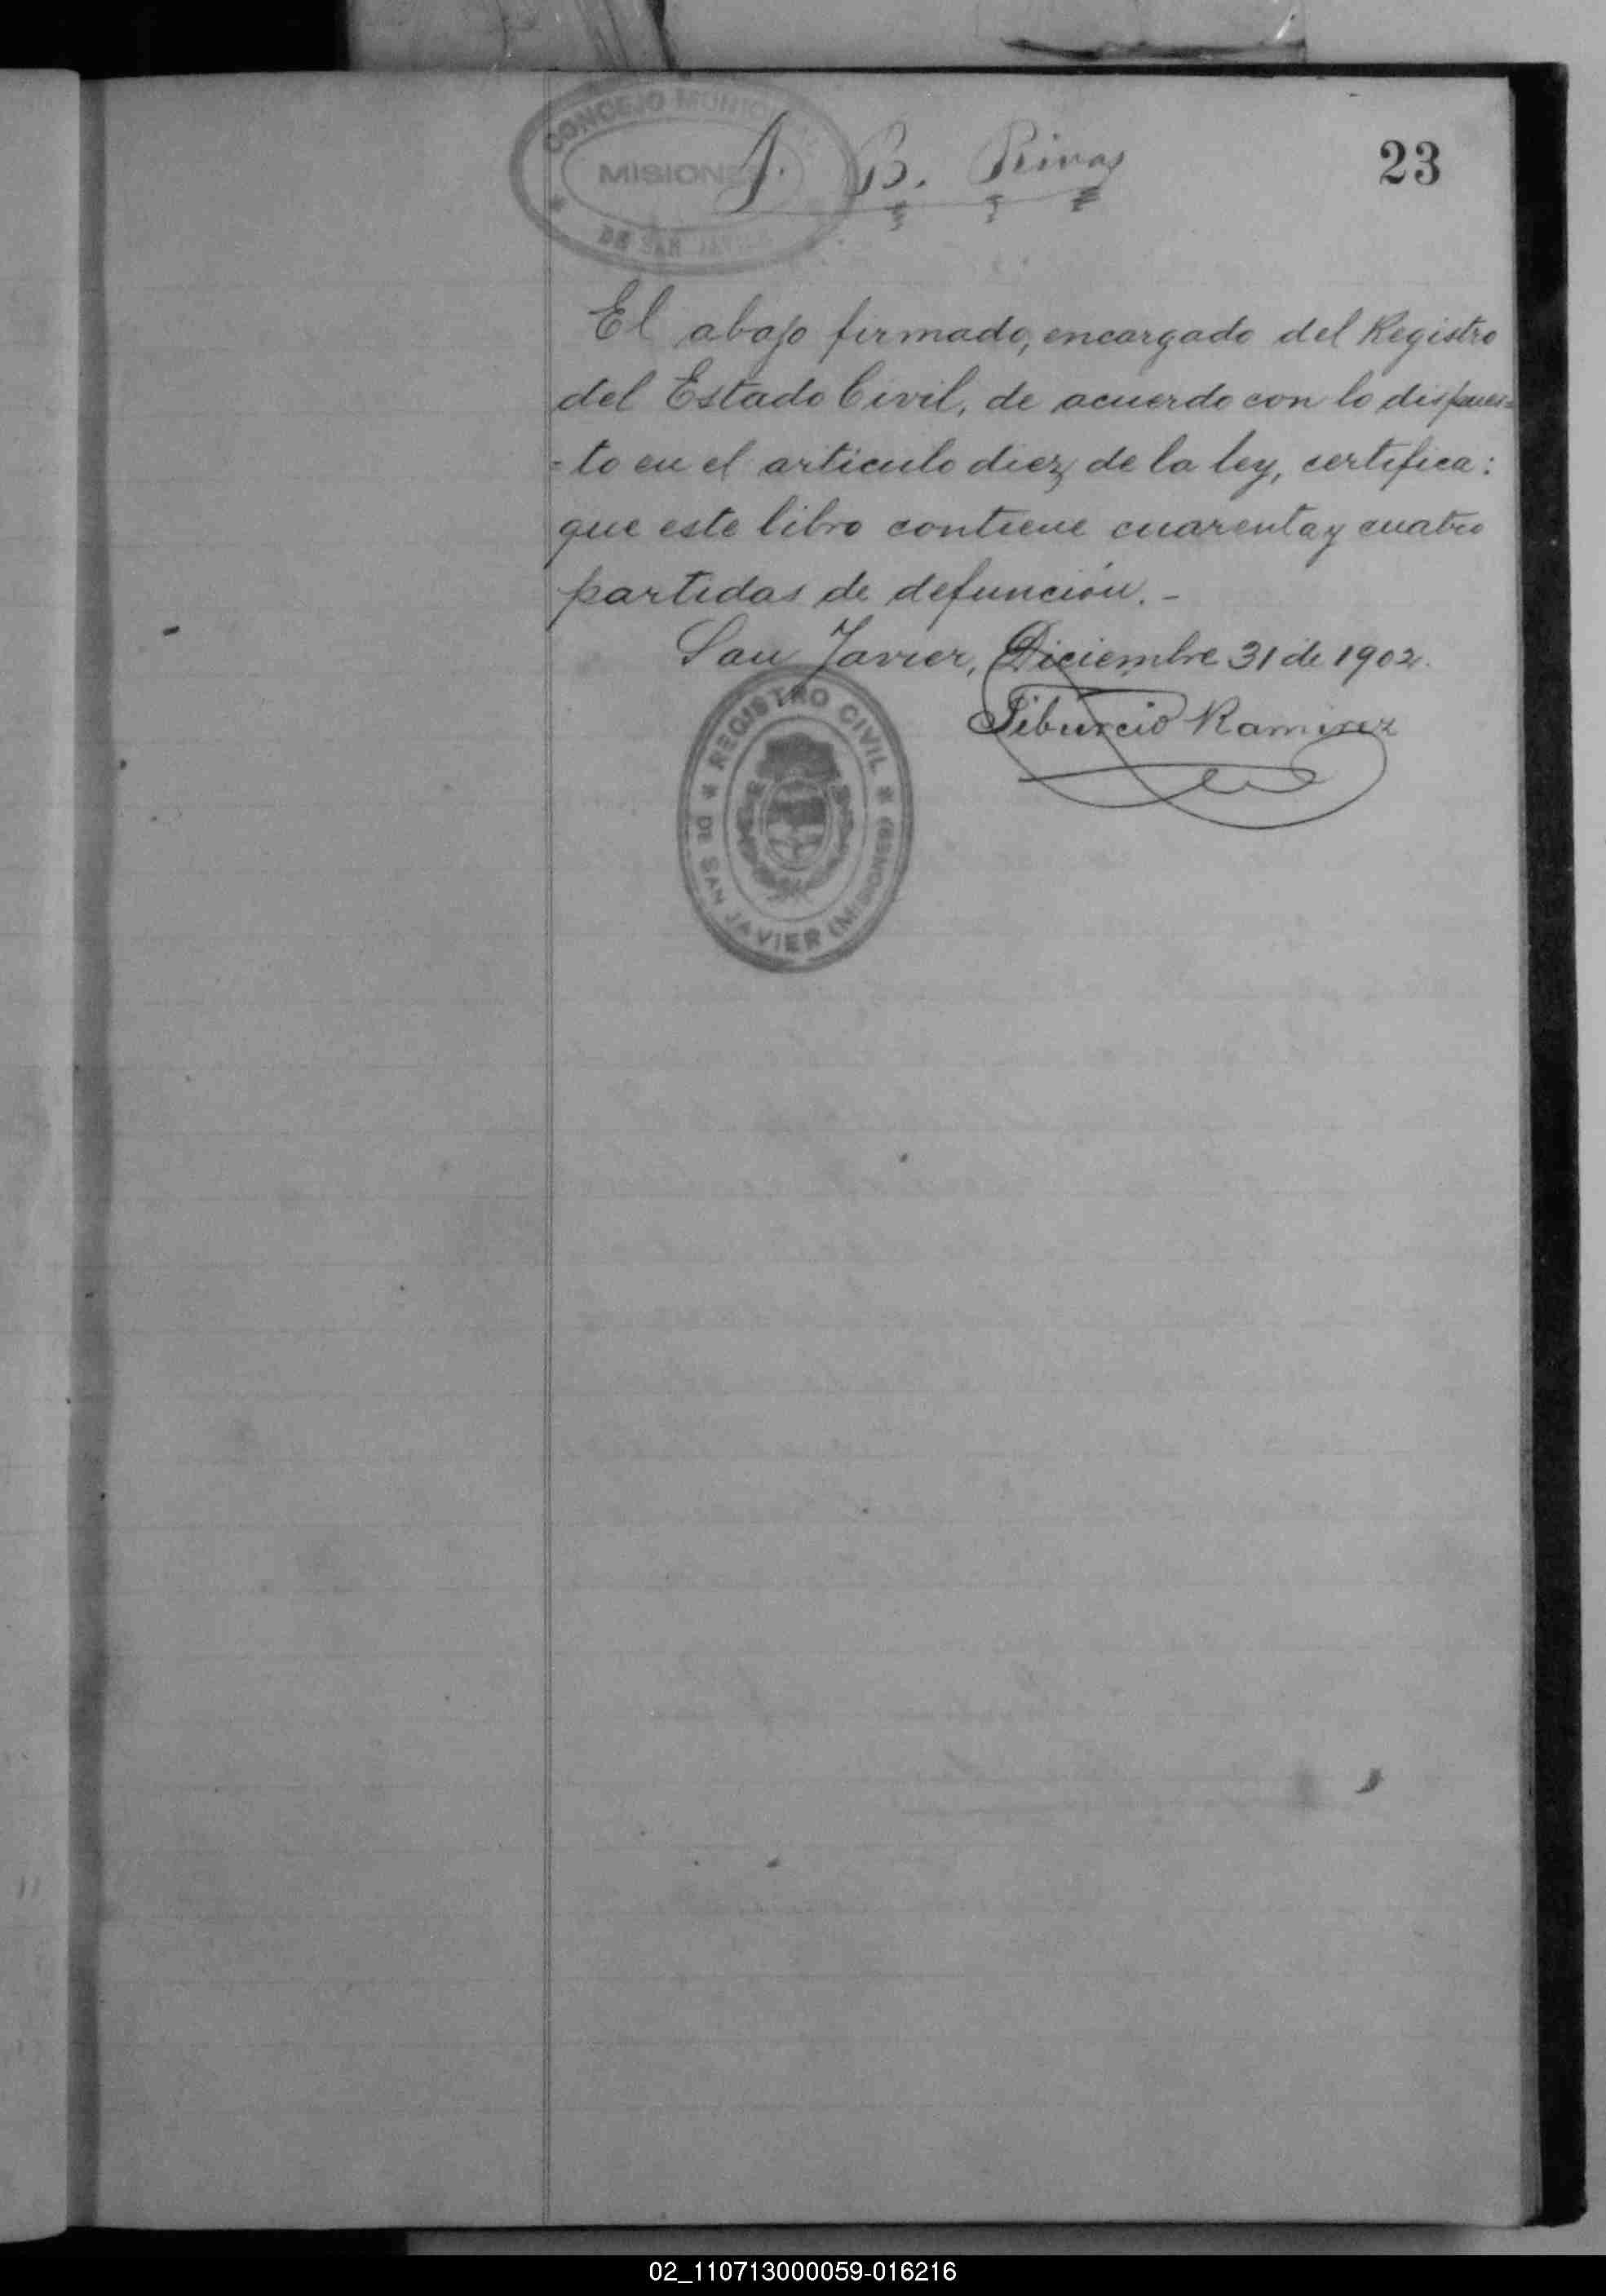 CONCEJO MUNICI
MISIONES
DE SAN JAVIER
J. B. Rivas
23
El abajo firmado, encargado del Registro
del Estado Civil, de acuerdo con lo dispues=
=to en el artículo diez de la ley, certifica:
que este libro contiene cuarenta y cuatro
partidas de defunción. -
San Javier, Diciembre 31 de 1902.
Tiburcio Ramirez
* REGISTRO CIVIL *
DE SAN JAVIER (MISIONES)
02_110713000059-016216